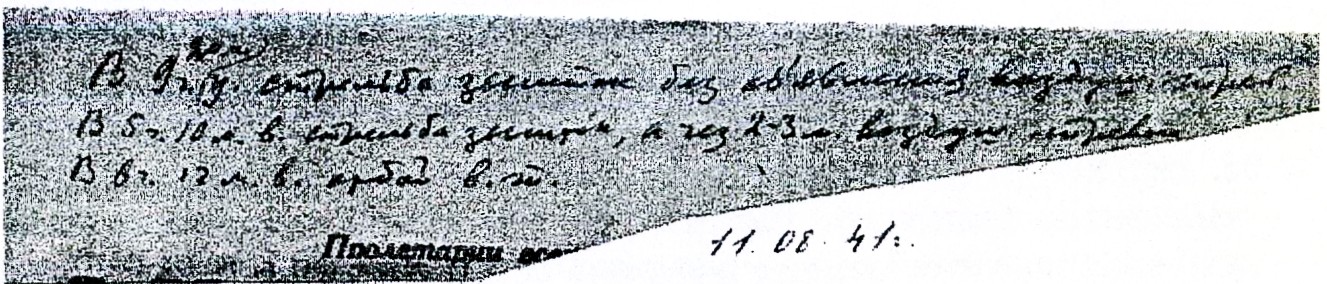 В 9 ч. у. стрельба зениток без объявления воздуш. тревог.
В 5 ч. 10 м. в. стрельба зениток, а чез 2-3 м. воздуш. тревога
В 6 ч. 12 м. в. отбой в. т.
Пролетарии все
11 08 41г.